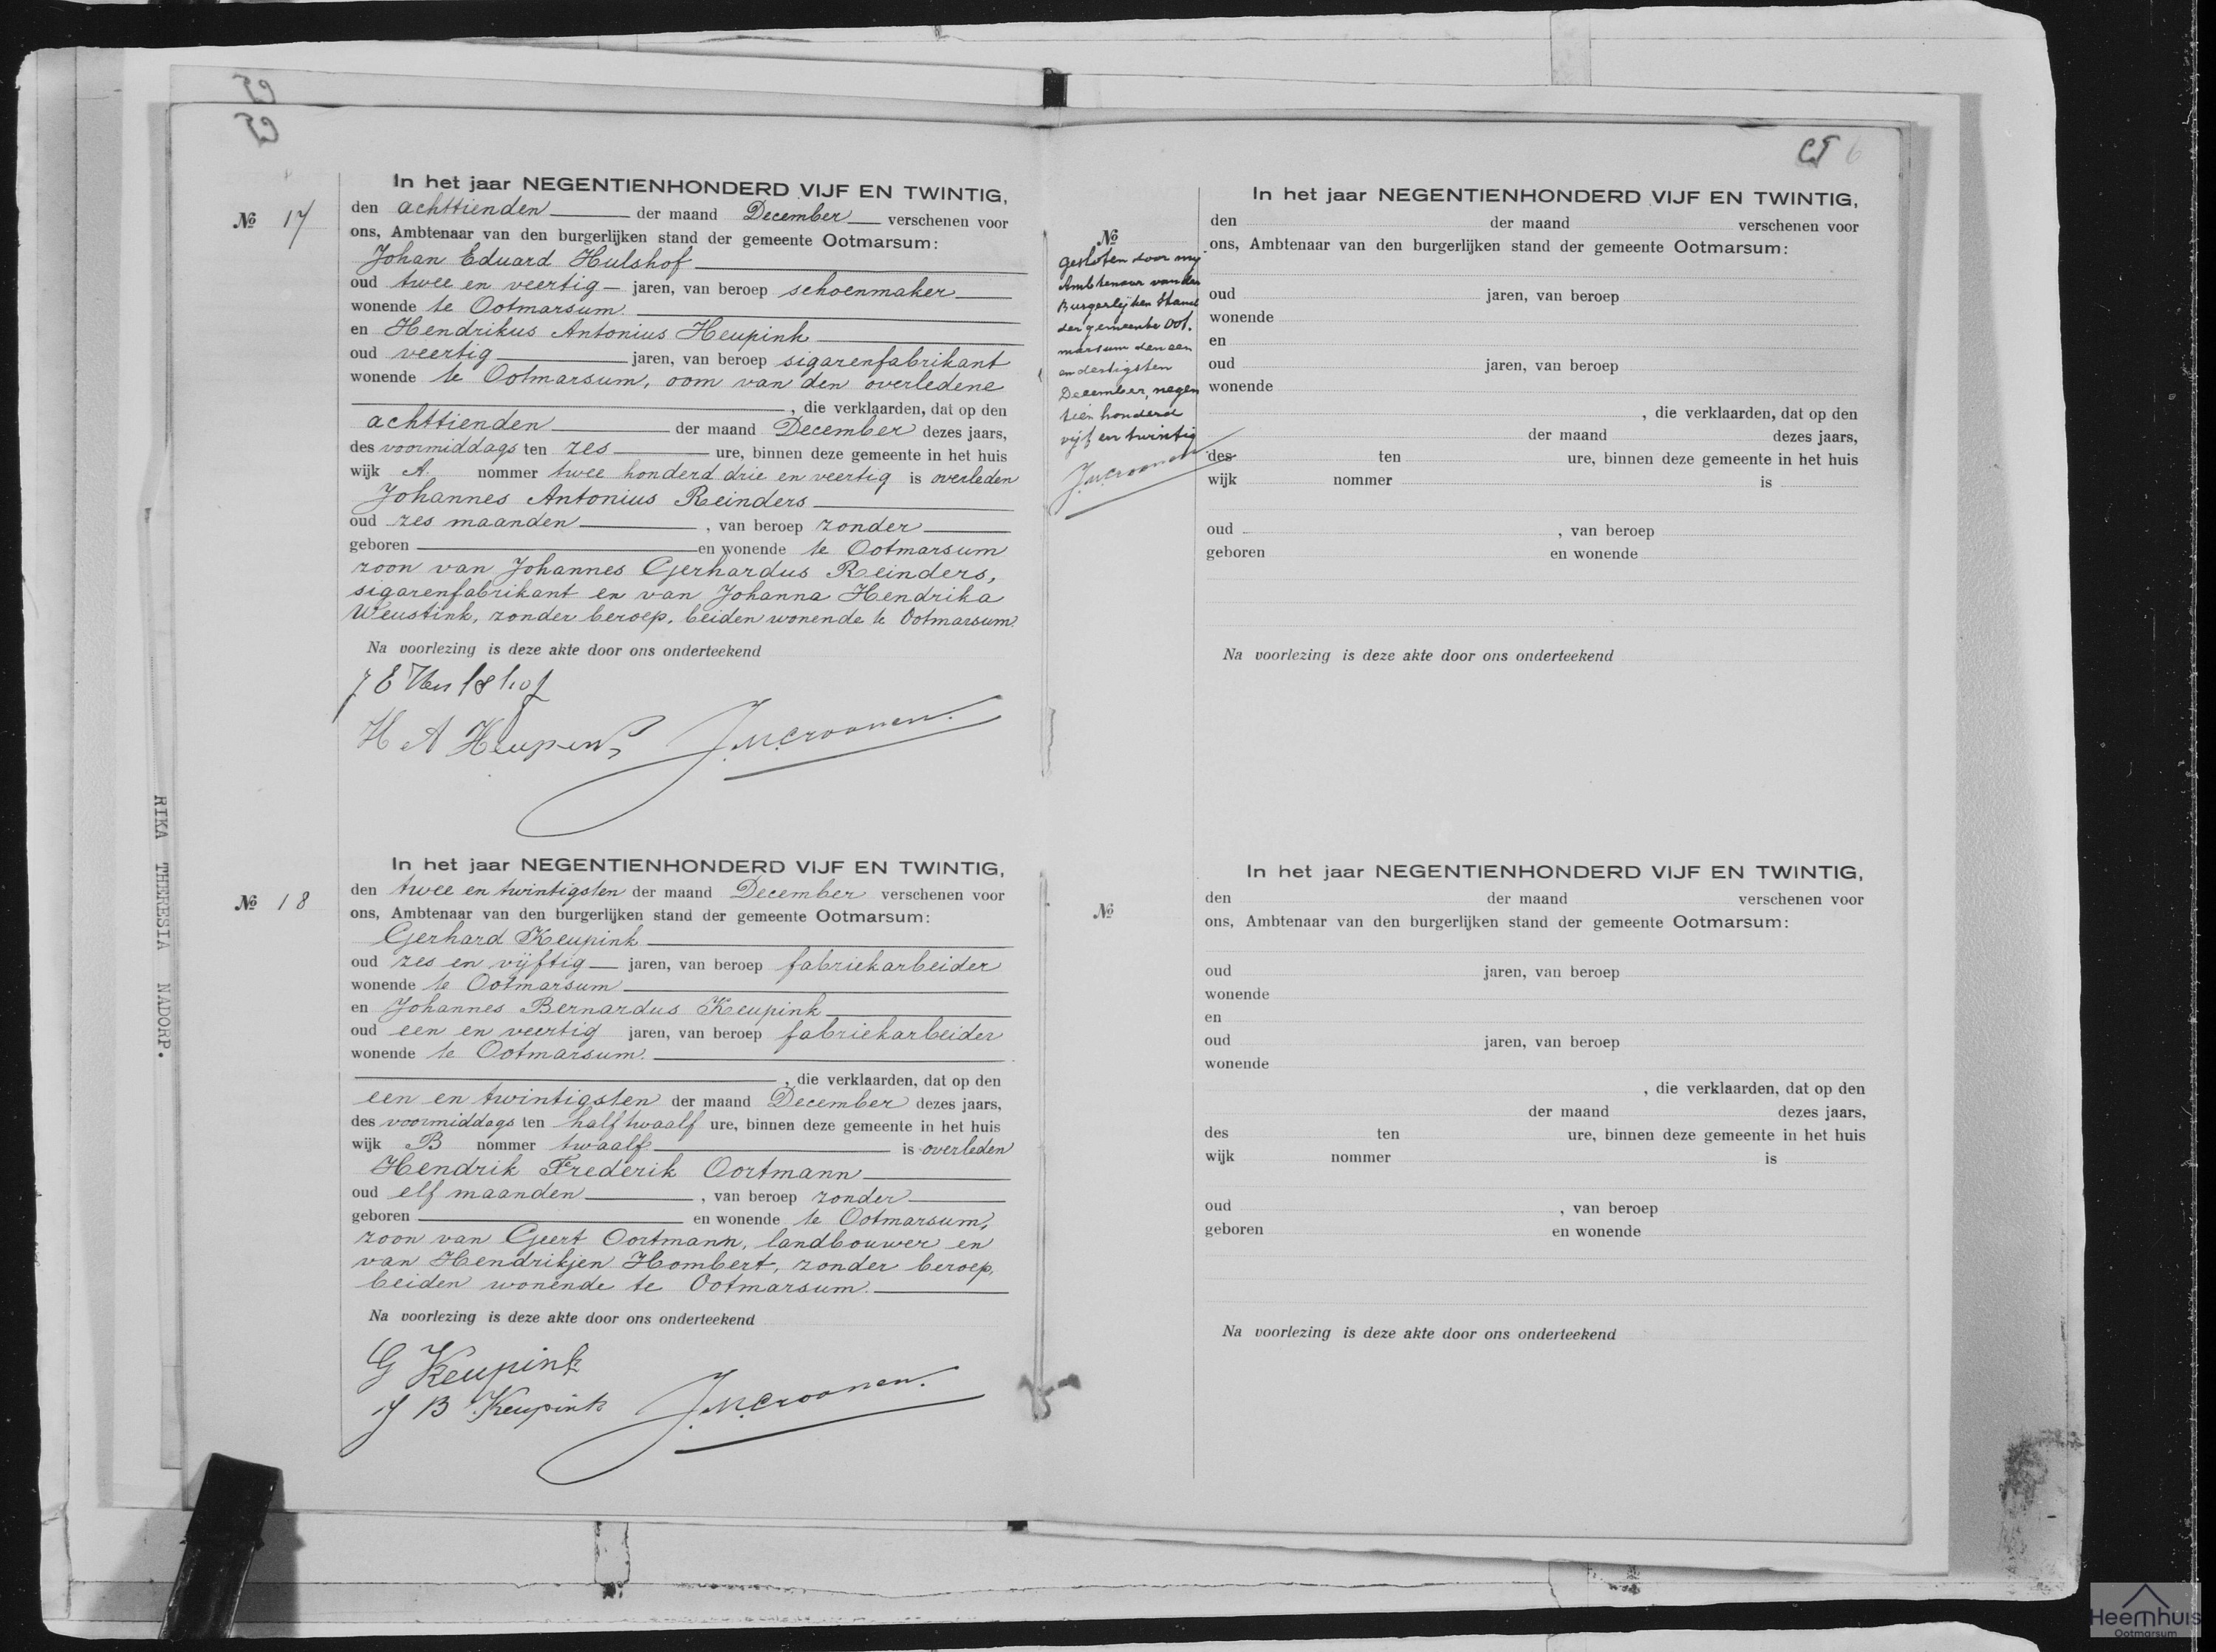 № 17
In het jaar NEGENTIENHONDERD VIJF EN TWINTIG,
den achttienden der maand December verschenen voor
ons, Ambtenaar van den burgerlijken stand der gemeente Ootmarsum:
Johan Eduard Hulshof
oud twee en veertig jaren, van beroep schoenmaker
wonende te Ootmarsum.
en Hendrikus Antonius Heupink
oud veertig jaren, van beroep sigarenfabrikant
wonende te Ootmarsum, oom van den overledene
, die verklaarden, dat op den
achttienden der maand December dezes jaars,
des voormiddags ten zes ure, binnen deze gemeente in het huis
wijk A. nommer twee honderd drie en veertig is overleden
Johannes Antonius Reinders
oud zes maanden, van beroep zonder
geboren en wonende te Ootmarsum
zoon van Johannes Gerhardus Reinders,
sigarenfabrikant en van Johanna Hendrika
Weustink, zonder beroep, beiden wonende te Ootmarsum.
Na voorlezing is deze akte door ons onderteekend
J E Hulshof
H A Heupink J.M.Croonen.
№ 18
In het jaar NEGENTIENHONDERD VIJF EN TWINTIG,
den twee en twintigsten der maand December verschenen voor
ons, Ambtenaar van den burgerlijken stand der gemeente Ootmarsum:
Gerhard Keupink
oud zes en vijftig jaren, van beroep fabriekarbeider
wonende te Ootmarsum
en Johannes Bernardus Keupink
oud een en veertig jaren, van beroep fabriekarbeider
wonende te Ootmarsum.
, die verklaarden, dat op den
een en twintigsten der maand December dezes jaars,
des voormiddags ten half twaalf ure, binnen deze gemeente in het huis
wijk B nommer twaalf is overleden
Hendrik Frederik Oortmann
oud elf maanden, van beroep zonder
geboren en wonende te Ootmarsum,
zoon van Geert Oortmann, landbouwer en
van Hendrikjen Hombert, zonder beroep,
beiden wonende te Ootmarsum.
Na voorlezing is deze akte door ons onderteekend
G Keupink
J B Keupink J.M.Croonen.
RIKA THERESIA NADORP.
6
№
gesloten door mij
Ambtenaar van den
Burgerlijken Stand
der gemeente Oot.
marsum den een
en dertigsten
December, negen
tien honderd
vijf en twintig
J.M.Croonen
In het jaar NEGENTIENHONDERD VIJF EN TWINTIG,
den der maand verschenen voor
ons, Ambtenaar van den burgerlijken stand der gemeente Ootmarsum:
oud jaren, van beroep
wonende
en
oud jaren, van beroep
wonende
, die verklaarden, dat op den
der maand dezes jaars,
des ten ure, binnen deze gemeente in het huis
wijk nommer is
oud , van beroep
geboren en wonende
Na voorlezing is deze akte door ons onderteekend
№
In het jaar NEGENTIENHONDERD VIJF EN TWINTIG,
den der maand verschenen voor
ons, Ambtenaar van den burgerlijken stand der gemeente Ootmarsum:
oud jaren, van beroep
wonende
en
oud jaren, van beroep
wonende
, die verklaarden, dat op den
der maand dezes jaars,
des ten ure, binnen deze gemeente in het huis
wijk nommer is
oud , van beroep
geboren en wonende
Na voorlezing is deze akte door ons onderteekend
Heemhuis
Ootmarsum